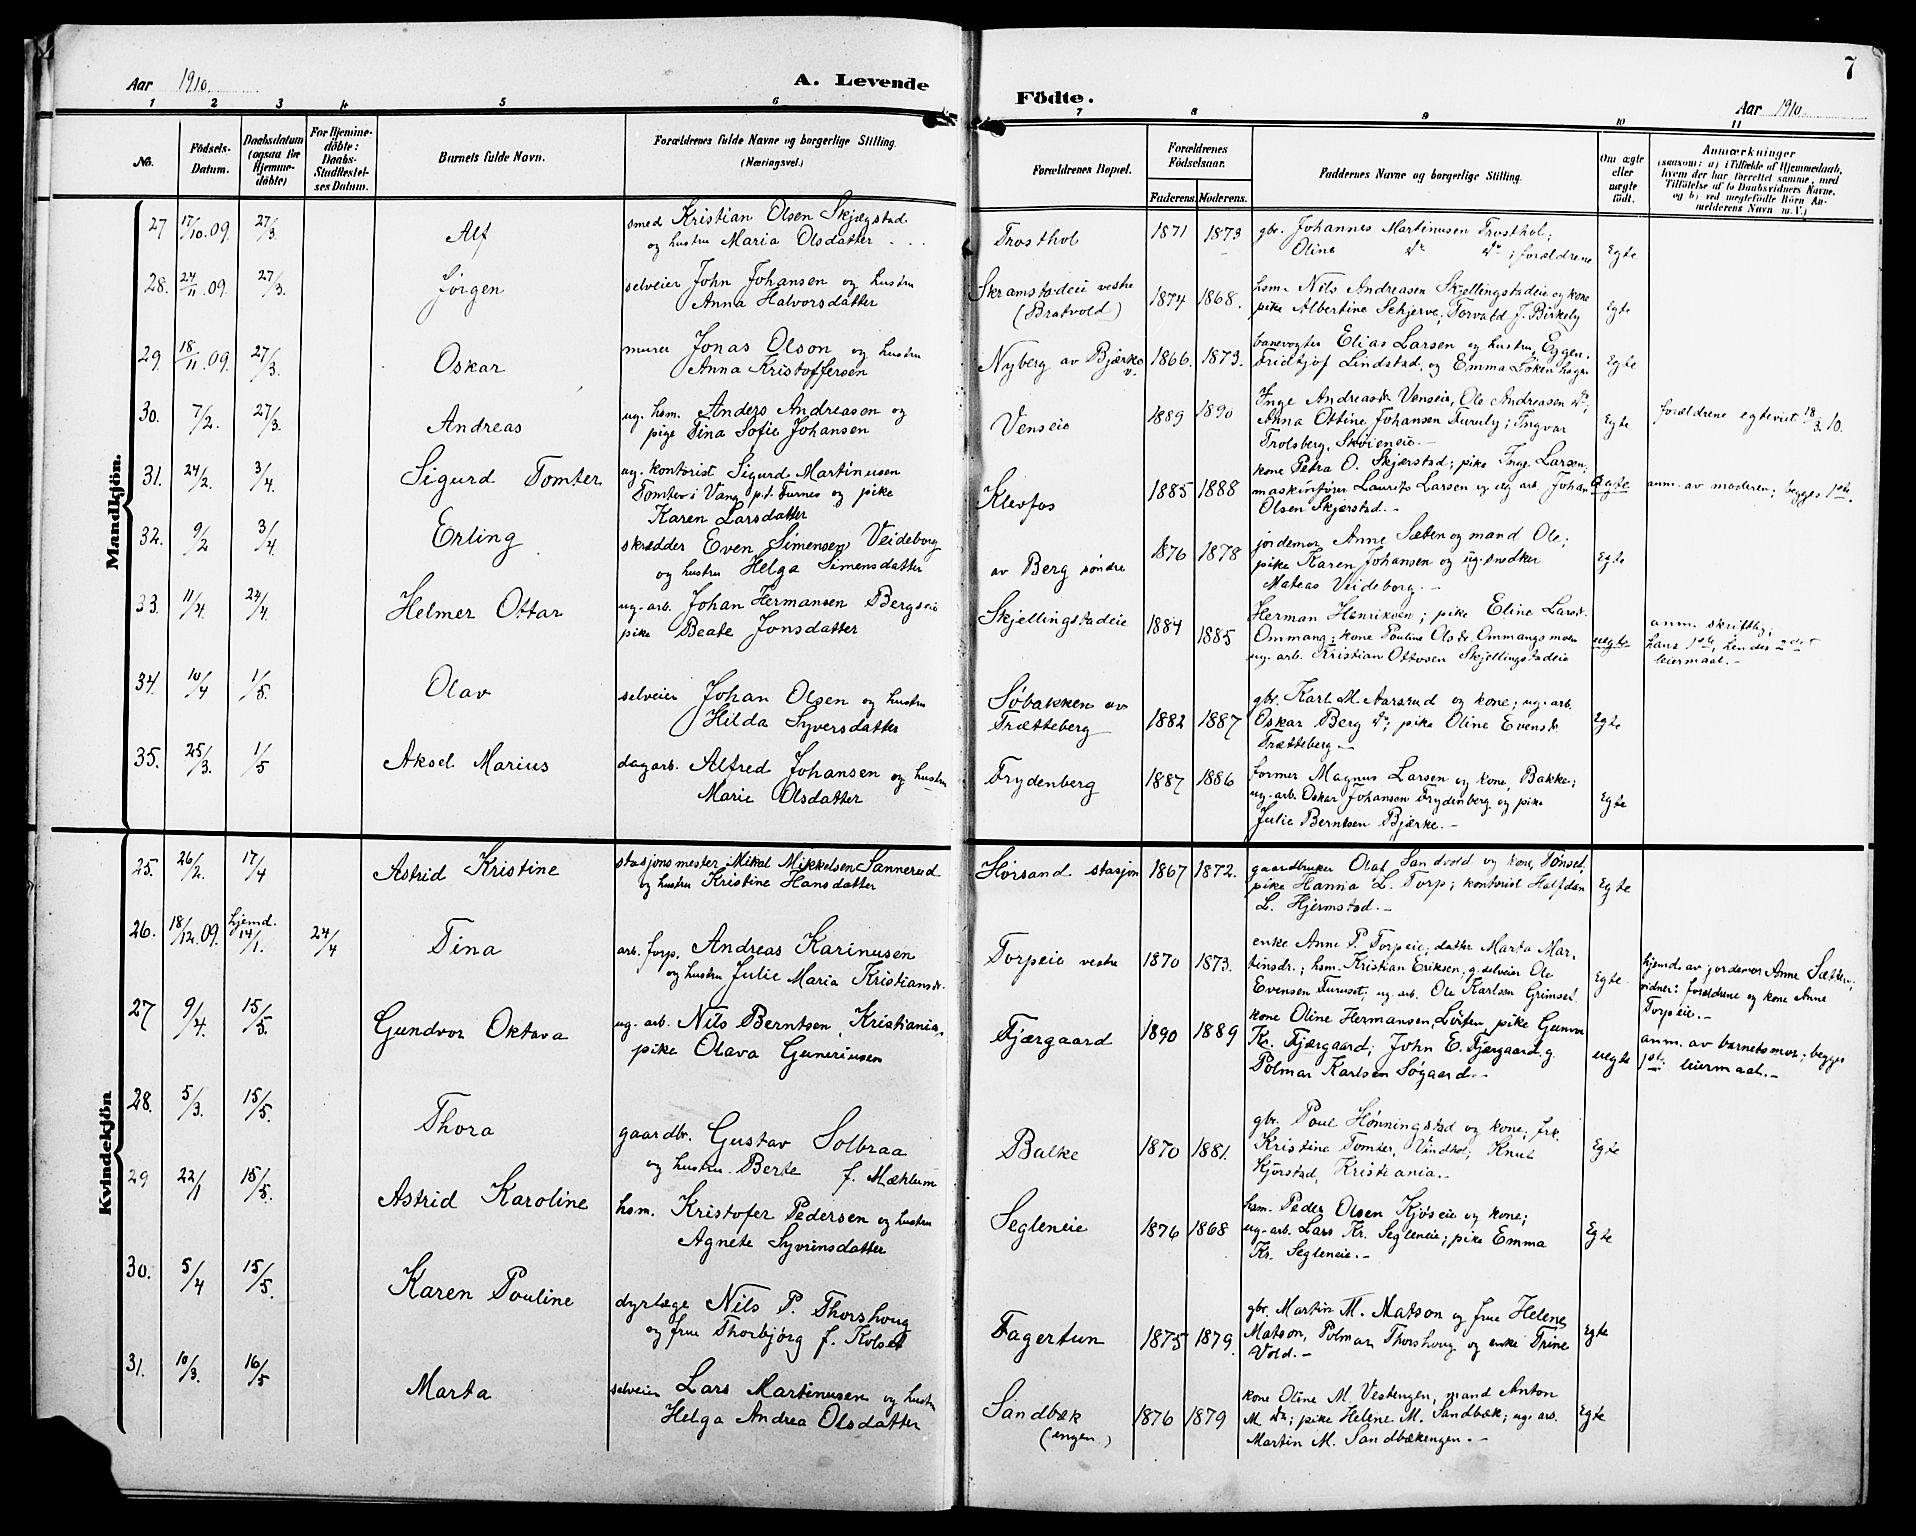 Aar 1910.
A. Levende
1 2 3 4 5 6
No.
Födsels-
Datum.
Daabsdatum
(ogsaa for
Hjemme-
döbte)
For Hjemme-
döbte:
Daabs-
Stadfæstel-
ses Datum.
Barnets fulde Navn.
Forældrenes fulde Navne og borgerlige Stilling.
(Næringsvei.)
Mandkjön.
27 17/10.09. 27/3. Alf smed Kristian Olsen Skjægstad
og hustru Maria Olsdatter
28. 24/11.09. 27/3. Jörgen selveier John Johansen og hustru
Anna Halvorsdatter
29. 18/11.09. 27/3. Oskar murer Jonas Olson og hustru
Anna Kristoffersen
30. 7/2. 27/3. Andreas ug. hsm. Anders Andreasen og
pige Tina Sofie Johansen
31. 24/2. 3/4. Sigurd Tomter ug. kontorist Sigurd Martinusen
Tomter i Vang p.t. Furnes og pike
Karen Larsdatter
32. 9/2 3/4. Erling skrædder Even Simensen Veideborg
og hustru Helga Simensdatter
33. 11/4. 24/4. Helmer Ottar ug. arb. Johan Hermansen Bergseie
pike Beate Jonsdatter
34. 10/4 1/5. Olav selveier Johan Olsen og hustru
Hilda Syversdatter
35. 25/3. 1/5 Aksel Marius dagarb. Alfred Johansen og hustru
Marie Olsdatter
Kvindekjön
25. 26/2. 17/4 Astrid Kristine stasjonsmester Mikal Mikkelsen Sannerud
og hustru Kristine Hansdatter
26. 18/12.09. hjemd. 14/1. 24/4 Tina arb. forp. Andreas Karinusen
og hustru Julie Maria Kristiansdr.
27 9/4. 15/5. Gundvor Oktava ug. arb. Nils Berntsen, Kristiania,
pike Olava Gunerinsen
28. 5/3. 15/5. Thora gaardbr. Gustav Solbraa
og hustru Berte f. Mæhlum
29 22/1 15/5. Astrid Karoline hsm. Kristofer Pedersen og hustru
Agnete Syvrinsdatter
30. 5/4 15/5. Karen Pouline dyrlæge Nils P. Thorshoug
og frue Thorbjörg f. Kolset
31. 10/3. 16/5 Marta selveier Lars Martinusen og hustru
Helga Andrea Olsdatter
7
Födte.
Aar 1910
7 8 9 10 11
Forældrenes Bopæl.
Forældrenes
Födselsaar.
Faderens. Moderens.
Faddernes Navne og borgerlige Stilling.
Om ægte
eller
uægte
födt.
Anmærkninger
(saasom: a) i Tilfælde af Hjemmedaab,
hvem der har forrettet samme, med
Tilföielse af to Daabsvidners Navne,
og b) ved uægtefödte Börn An-
melderens Navn m. V.)
Trosthol 1871 1873 gbr. Johannes Martinusen Trosthol;
Oline do do; forældrene Egte
Skramstadeie vestre
(Bratvold) 1874 1868. hsm. Nils Andreasen Skjellingstadeie og kone
pike Albertine Schjerve; Torvald J. Birkely Egte
Nyberg av Bjærke v. 1866. 1873. banevogter Elias Larsen og hustru, Eggen.
Fridtjof Lindstad, og Emma Löken Egte
Venseie 1889 1890 Inge Andreasdr Venseie, Ole Andreasen do;
Anna Ottine Johansen Furuly; Ingvar
Trolsberg, Skvieneie.- Egte forældrene egteviet 18/3.10.
Klevfos 1885 1888 kone Petra O. Skjærstad; pike Inge Larsen;
maskinförer Laurits Larsen og ug. arb. Johan
Olsen Skjærstad.- anm. av moderen; begges 1ste.
av Berg söndre 1876 1878 jordemor Anne Sæten og mand Ole;
pike Karen Johansen og ug. snedker
Mateas Veideborg.- Egte
Skjellingstadeie 1884 1885 Herman Henriksen; pike Eline Larsdr.
Ommang; kone Pauline Olsdr. Ommangsmoen
ug. arb. Kristian Ottosen Skjellingstadeie uegte anm. skriftlig;
hans 1ste, hendes 2det
leiermaal.-
Söbakken av
Trætteberg 1882 1887 gbr. Karl M. Aarsrud og kone; ug. arb.
Oskar Berg do; pike Oline Evensdr.
Trætteberg.- Egte
Frydenberg 1887 1886 former Magnus Larsen og kone, Bakke;
ug. arb. Oskar Johansen Frydenberg og pike
Julie Berntsen Bjærke.- Egte
Hörsand stasjon 1867 1872. gaardbruker Olaf Sandvold og kone, Tönset,
pike Hanna L. Torp; kontorist Halfdan
L. Hjermstad.- Egte
Torpeie vestre 1870 1873. enke Anne P. Torpeie, datter Marta Mar-
tinsdr.; hsm. Kristian Eriksen, g. selveier Ole
Evensen Furuset; ug. arb. Ole Karlsen Grimset. Egte hjemd. av jordemor Anne Sætten;
vidner: forældrene og kone Anne
Torpeie.-
Fjærgaard 1890 1889 kone Oline Hermansen, Löiten, pike Gunvor
Kr. Fjærgaard; John E. Fjærgaard. g.
Polmar Karlsen Sögaard.- uegte anm. av barnets mor; begges
1ste leiermaal.-
Balke 1870 1881. gbr. Poul Hönningstad og kone; frk.
Kristine Tomter, Vindhol; Knut
Kjörstad, Kristiania.- Egte
Segleneie 1876 1868 hsm. Peder Olsen Kjöseie og kone;
ug. arb. Lars Kr. Segleneie; pike Emma
Kr. Segleneie.- Egte
Fagertun 1875 1879. gbr. Martin M. Matson og frue Helene
Matson, Polmar Thorshoug og enke Trine
Vold.- Egte
Sandbæk
(engen) 1876 1879 kone Oline M. Vestengen, mand Anton
M do; pike Helene M. Sandbæk; ug. arb.
Martin M. Sandbækengen.- Egte